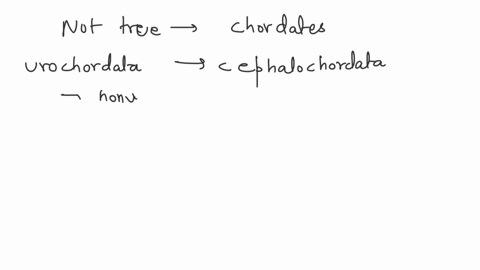 Not tree → chordates
urochordata → cephalochordata
¬ honv